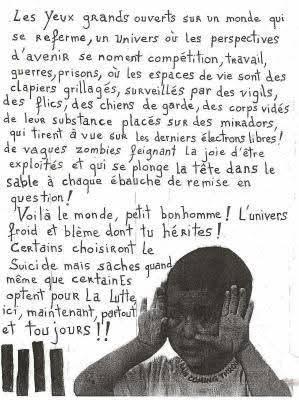 Les Yeux grands ouverts sur un monde qui
se referme, un univers où les perspectives
d'avenir se noment compétition, travail,
guerres, prisons, où les espaces de vie sont des
clapiers grillagés, surveillés par des vigils,
des flics, des chiens de garde, des corps vidés
de leur substance placés sur des miradors,
qui tirent à vue sur les derniers électrons libres!
de vagues zombies feignant la joie d'être
exploités et qui se plonge la tête dans le
sable à chaque ébauche de remise en
question!
Voilà le monde, petit bonhomme! L'univers
froid et blème dont tu hérites!
Certains choisiront le
Suicide mais saches quand
même que certainEs
optent pour La Lutte,
ici, maintenant, partout
et toujours!!
COMING